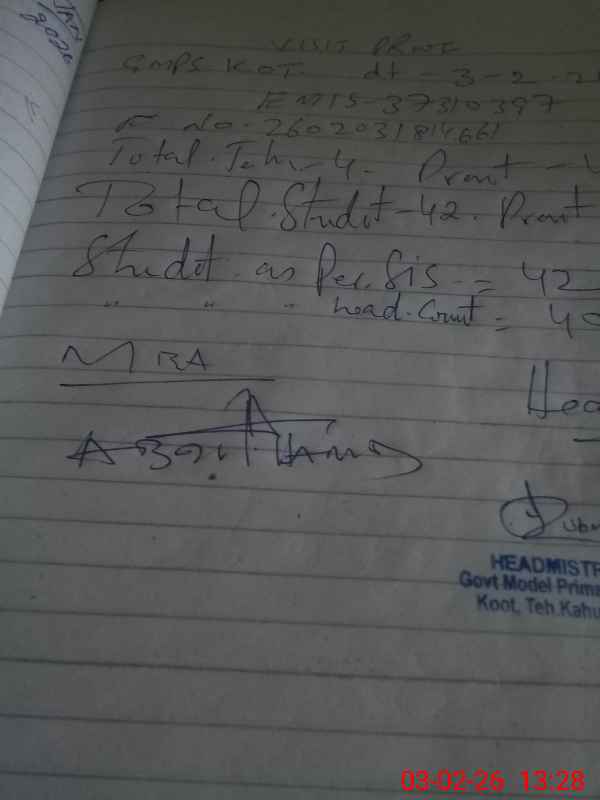 JAN
2026
VISIT PRMF
GMPS KOT. dt - 3 - 2 - 2
EMIS 37310397
No. 2602031814661
Total. Tchr - 4. Prent - 4
Total. Studt - 42. Prent
Studt as Per. Sis = 42
" " " head. Count = 40
MEA
Hea
HEADMISTR
Govt Model Prima
Koot, Teh.Kahu
03-02-26 13:28